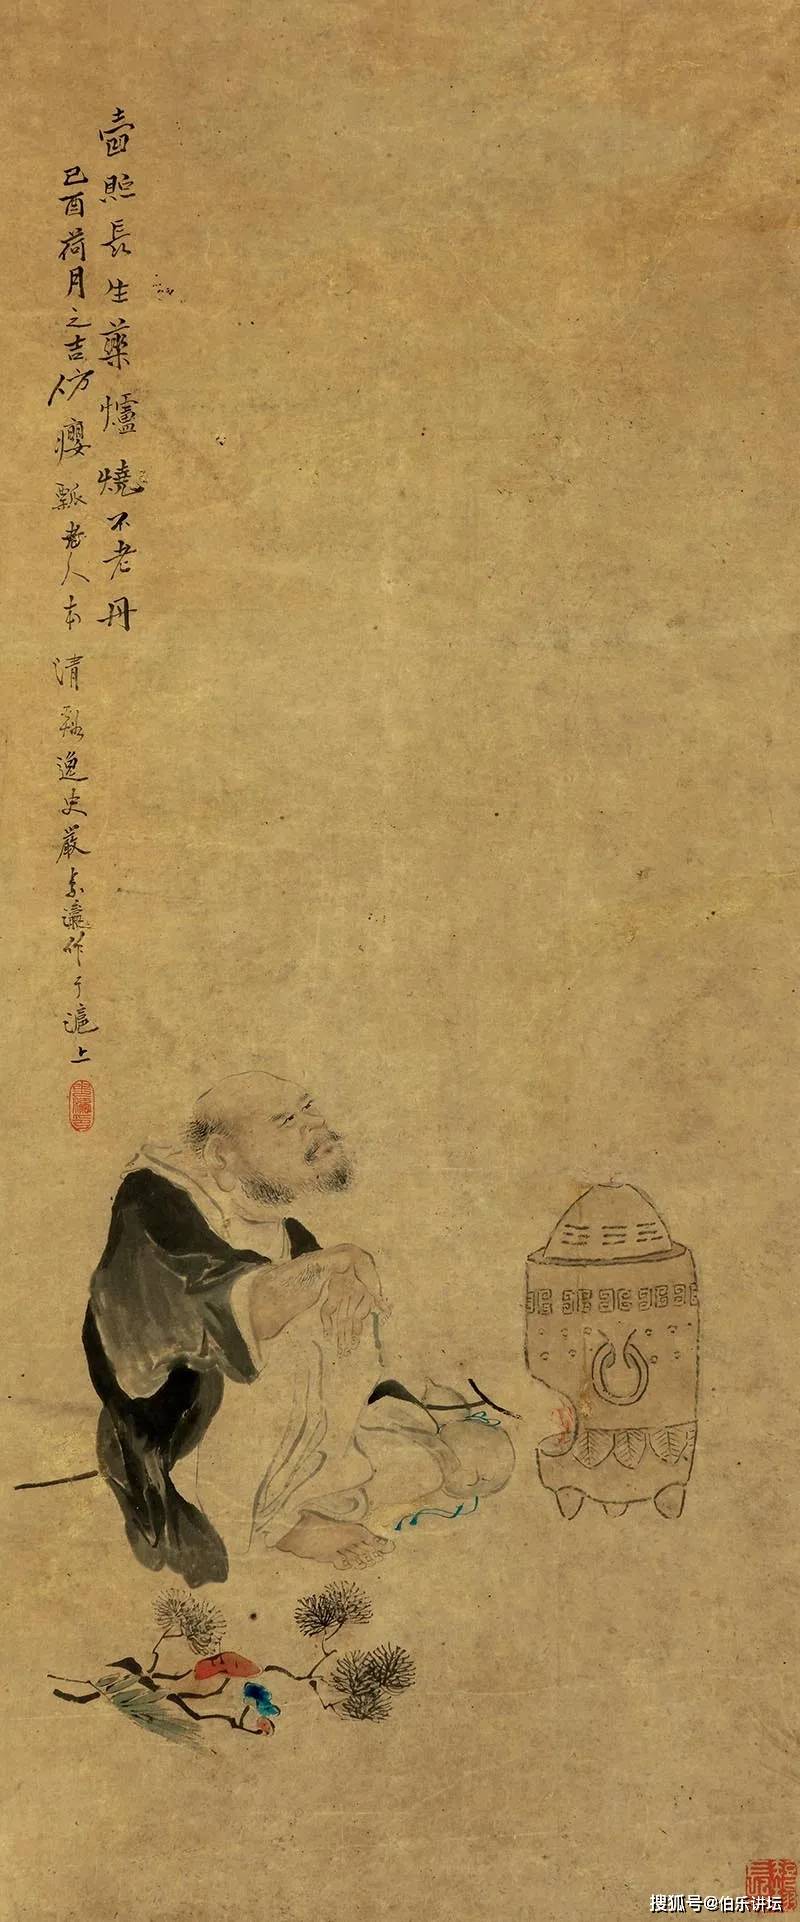 壺長生藥爐燒不老丹
己酉荷月之吉仿癭瓢老人本清谿逸史嚴作于滬上
搜狐号@伯乐讲坛